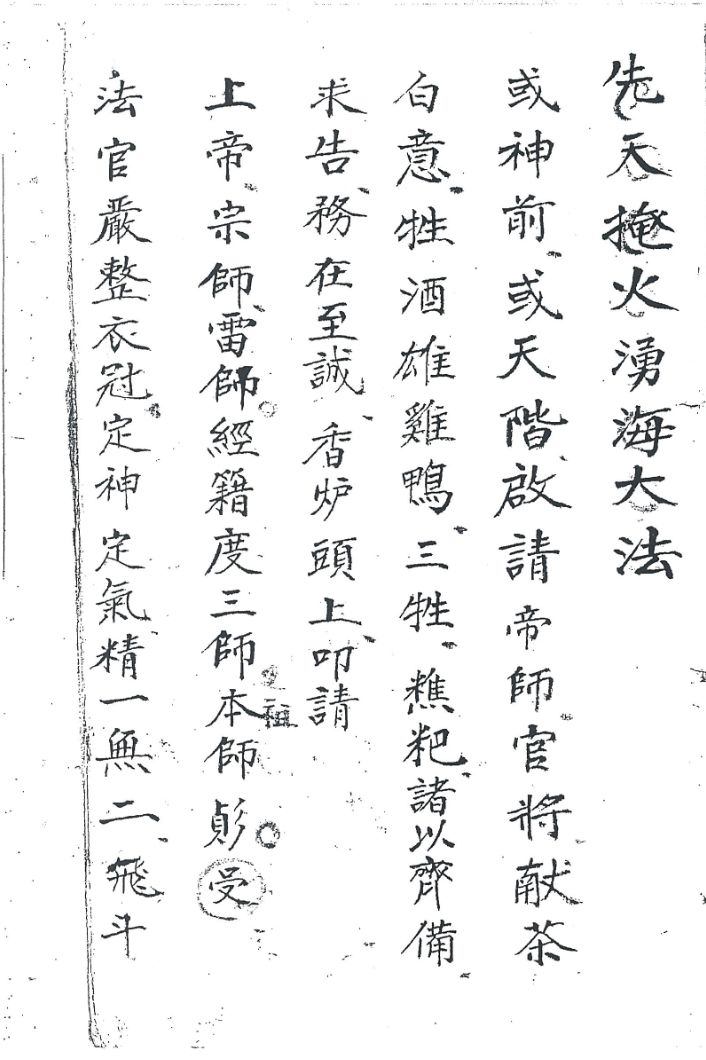 先天掩火湧海大法
或神前、或天階、啟請帝師官將献茶
白意、牲酒雄雞鴨、三牲、糕粑、諸以齊備、
求告、務在至誠、香炉頭上、叩請
上帝、宗師、雷師。經籍度三師本師
祖
受
法官嚴整衣冠、定神定氣、精一無二、飛斗